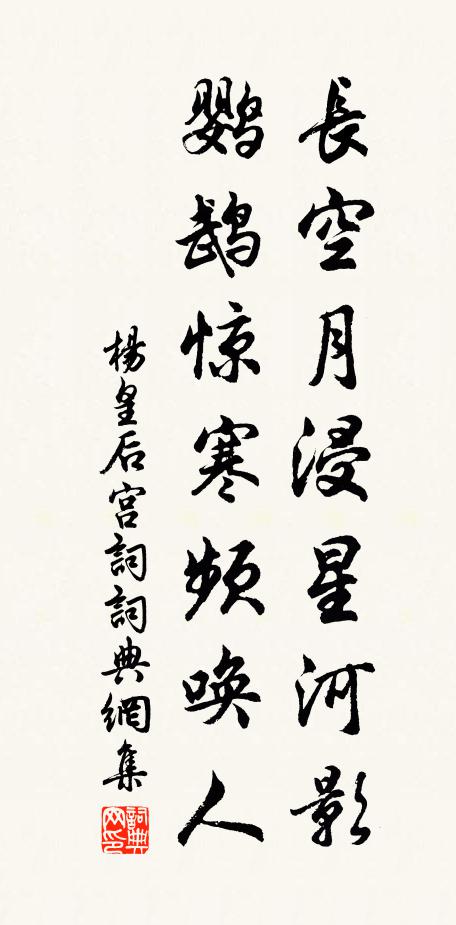 長空月浸星河影
鹦鹉惊寒频唤人
楊皇后宫詞詞典網集
詞典网印